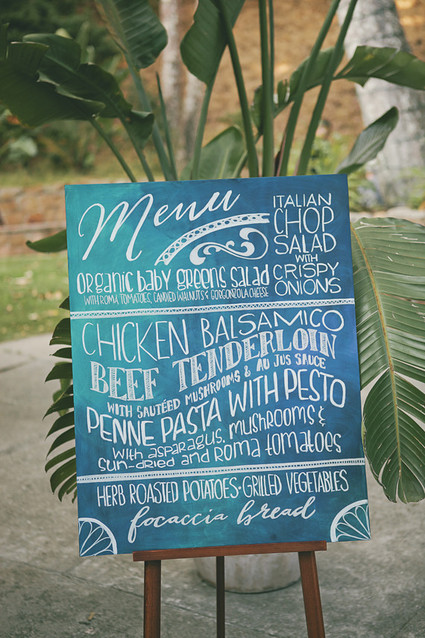 Menu
ITALIAN
CHOP
SALAD
WITH
CRISPY
ONIONS
ORGANIC BABY GREENS SALAD
WITH ROMA TOMATOES, CANDIED WALNUTS & GORGONZOLA CHEESE
CHICKEN BALSAMICO
BEEF TENDERLOIN
WITH SAUTÉED MUSHROOMS & AU JUS SAUCE
PENNE PASTA WITH PESTO
WITH ASPARAGUS, MUSHROOMS &
SUN-DRIED AND ROMA TOMATOES
HERB ROASTED POTATOES · GRILLED VEGETABLES
focaccia bread